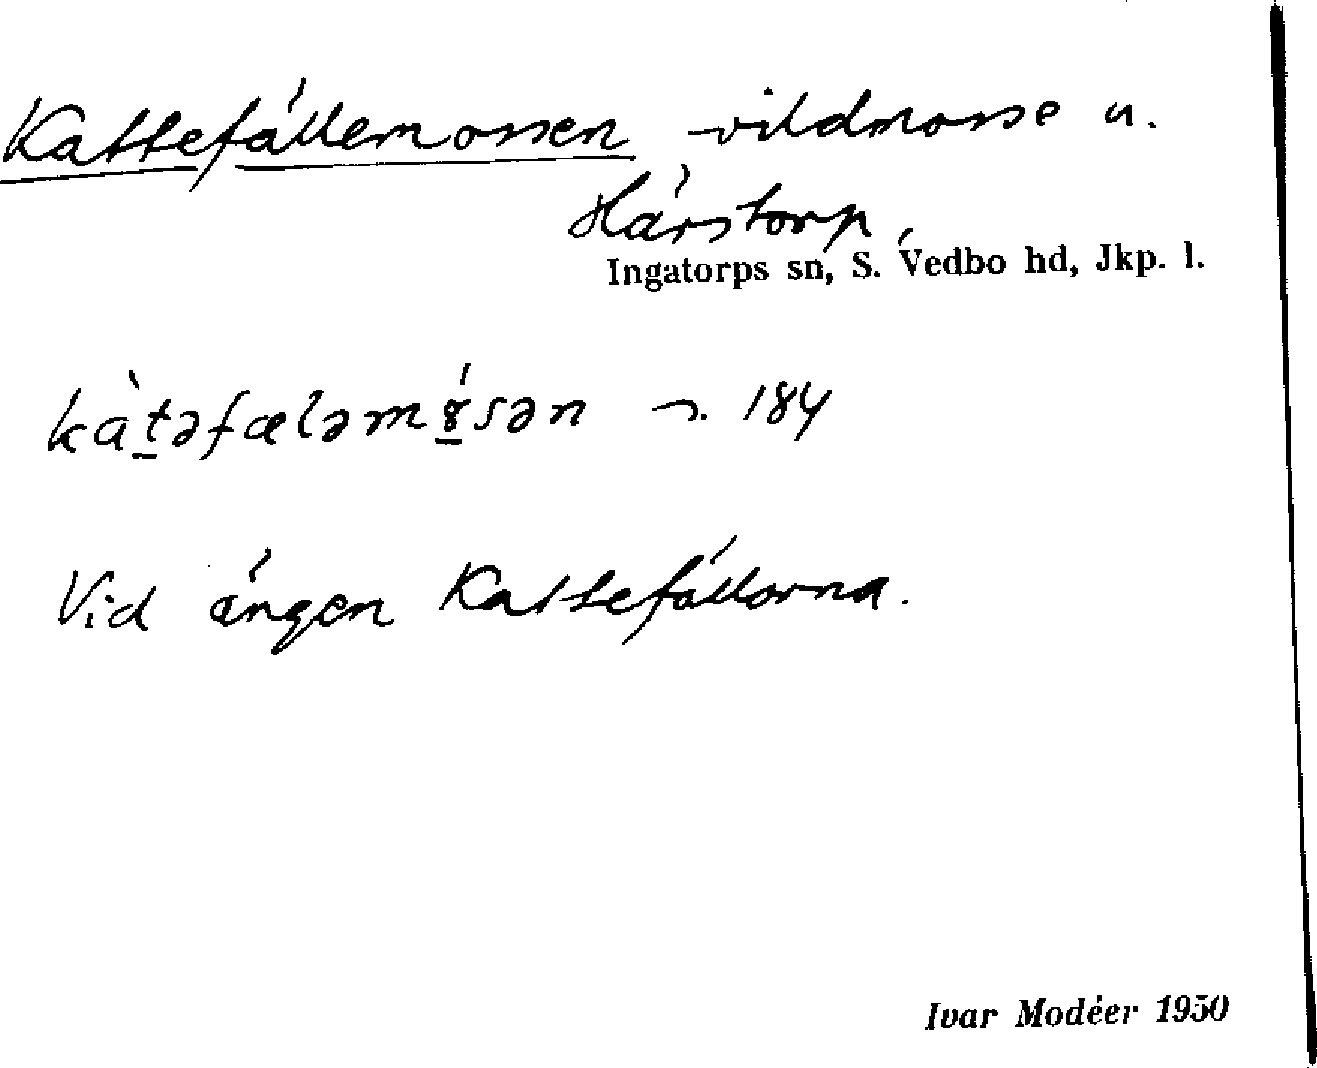 Kattefällemossen vildmosse u.
Härstorp,
Ingatorps sn, S. Vedbo hd, Jkp. l.
kàt̲əfæləmɤ̲́sən 184
Vid ängen Kattefällorna.
Ivar Modéer 1950